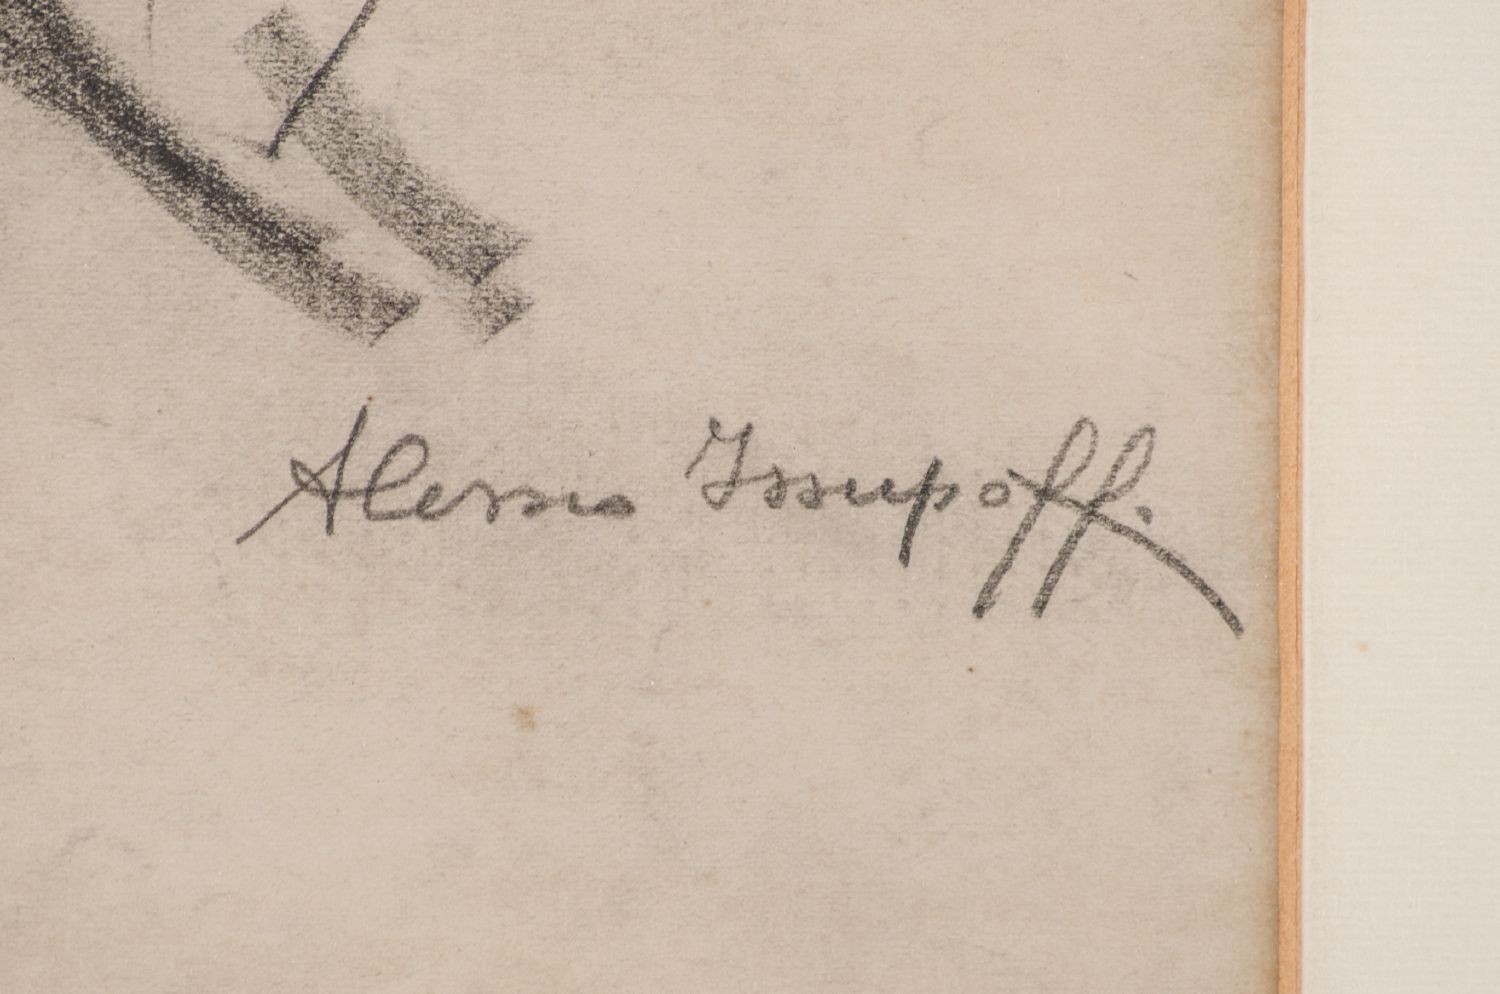 Alessio Issupoff.